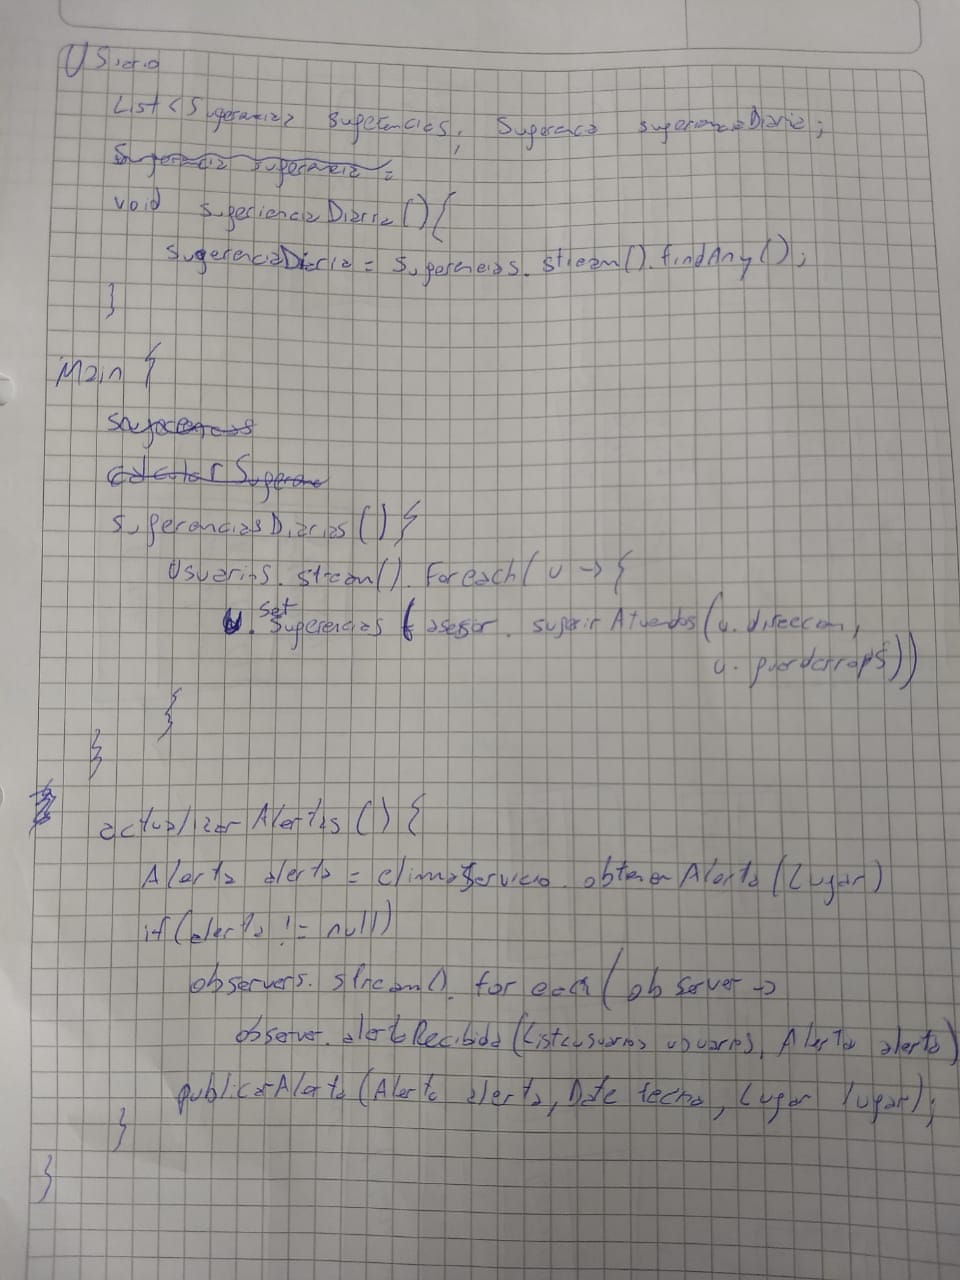 Usuario
List<Sugerencia> sugerencias; Sugerencia sugerenciaDiaria;
Sugerencia sugerencia =
void sugerenciaDiaria(){
sugerenciaDiaria = sugerencias.stream().findAny();
}
Main {
sugerencias
calcular Sugeren
sugerenciasDiarias(){
Usuarios.stream().Foreach(u -> {
u.setSugerencias(asesor.sugerirAtuendos(u.direccion,
u.guardarropas))
}
}
actualizarAlertas(){
Alerta alerta = climaServicio.obtenerAlerta(Lugar)
if(alerta != null)
observers.stream().for each(observer ->
observer.alertaRecibida(List<usuarios usuarios, Alerta alerta)
publicarAlerta(Alerta alerta, Date fecha, Lugar lugar);
}
}